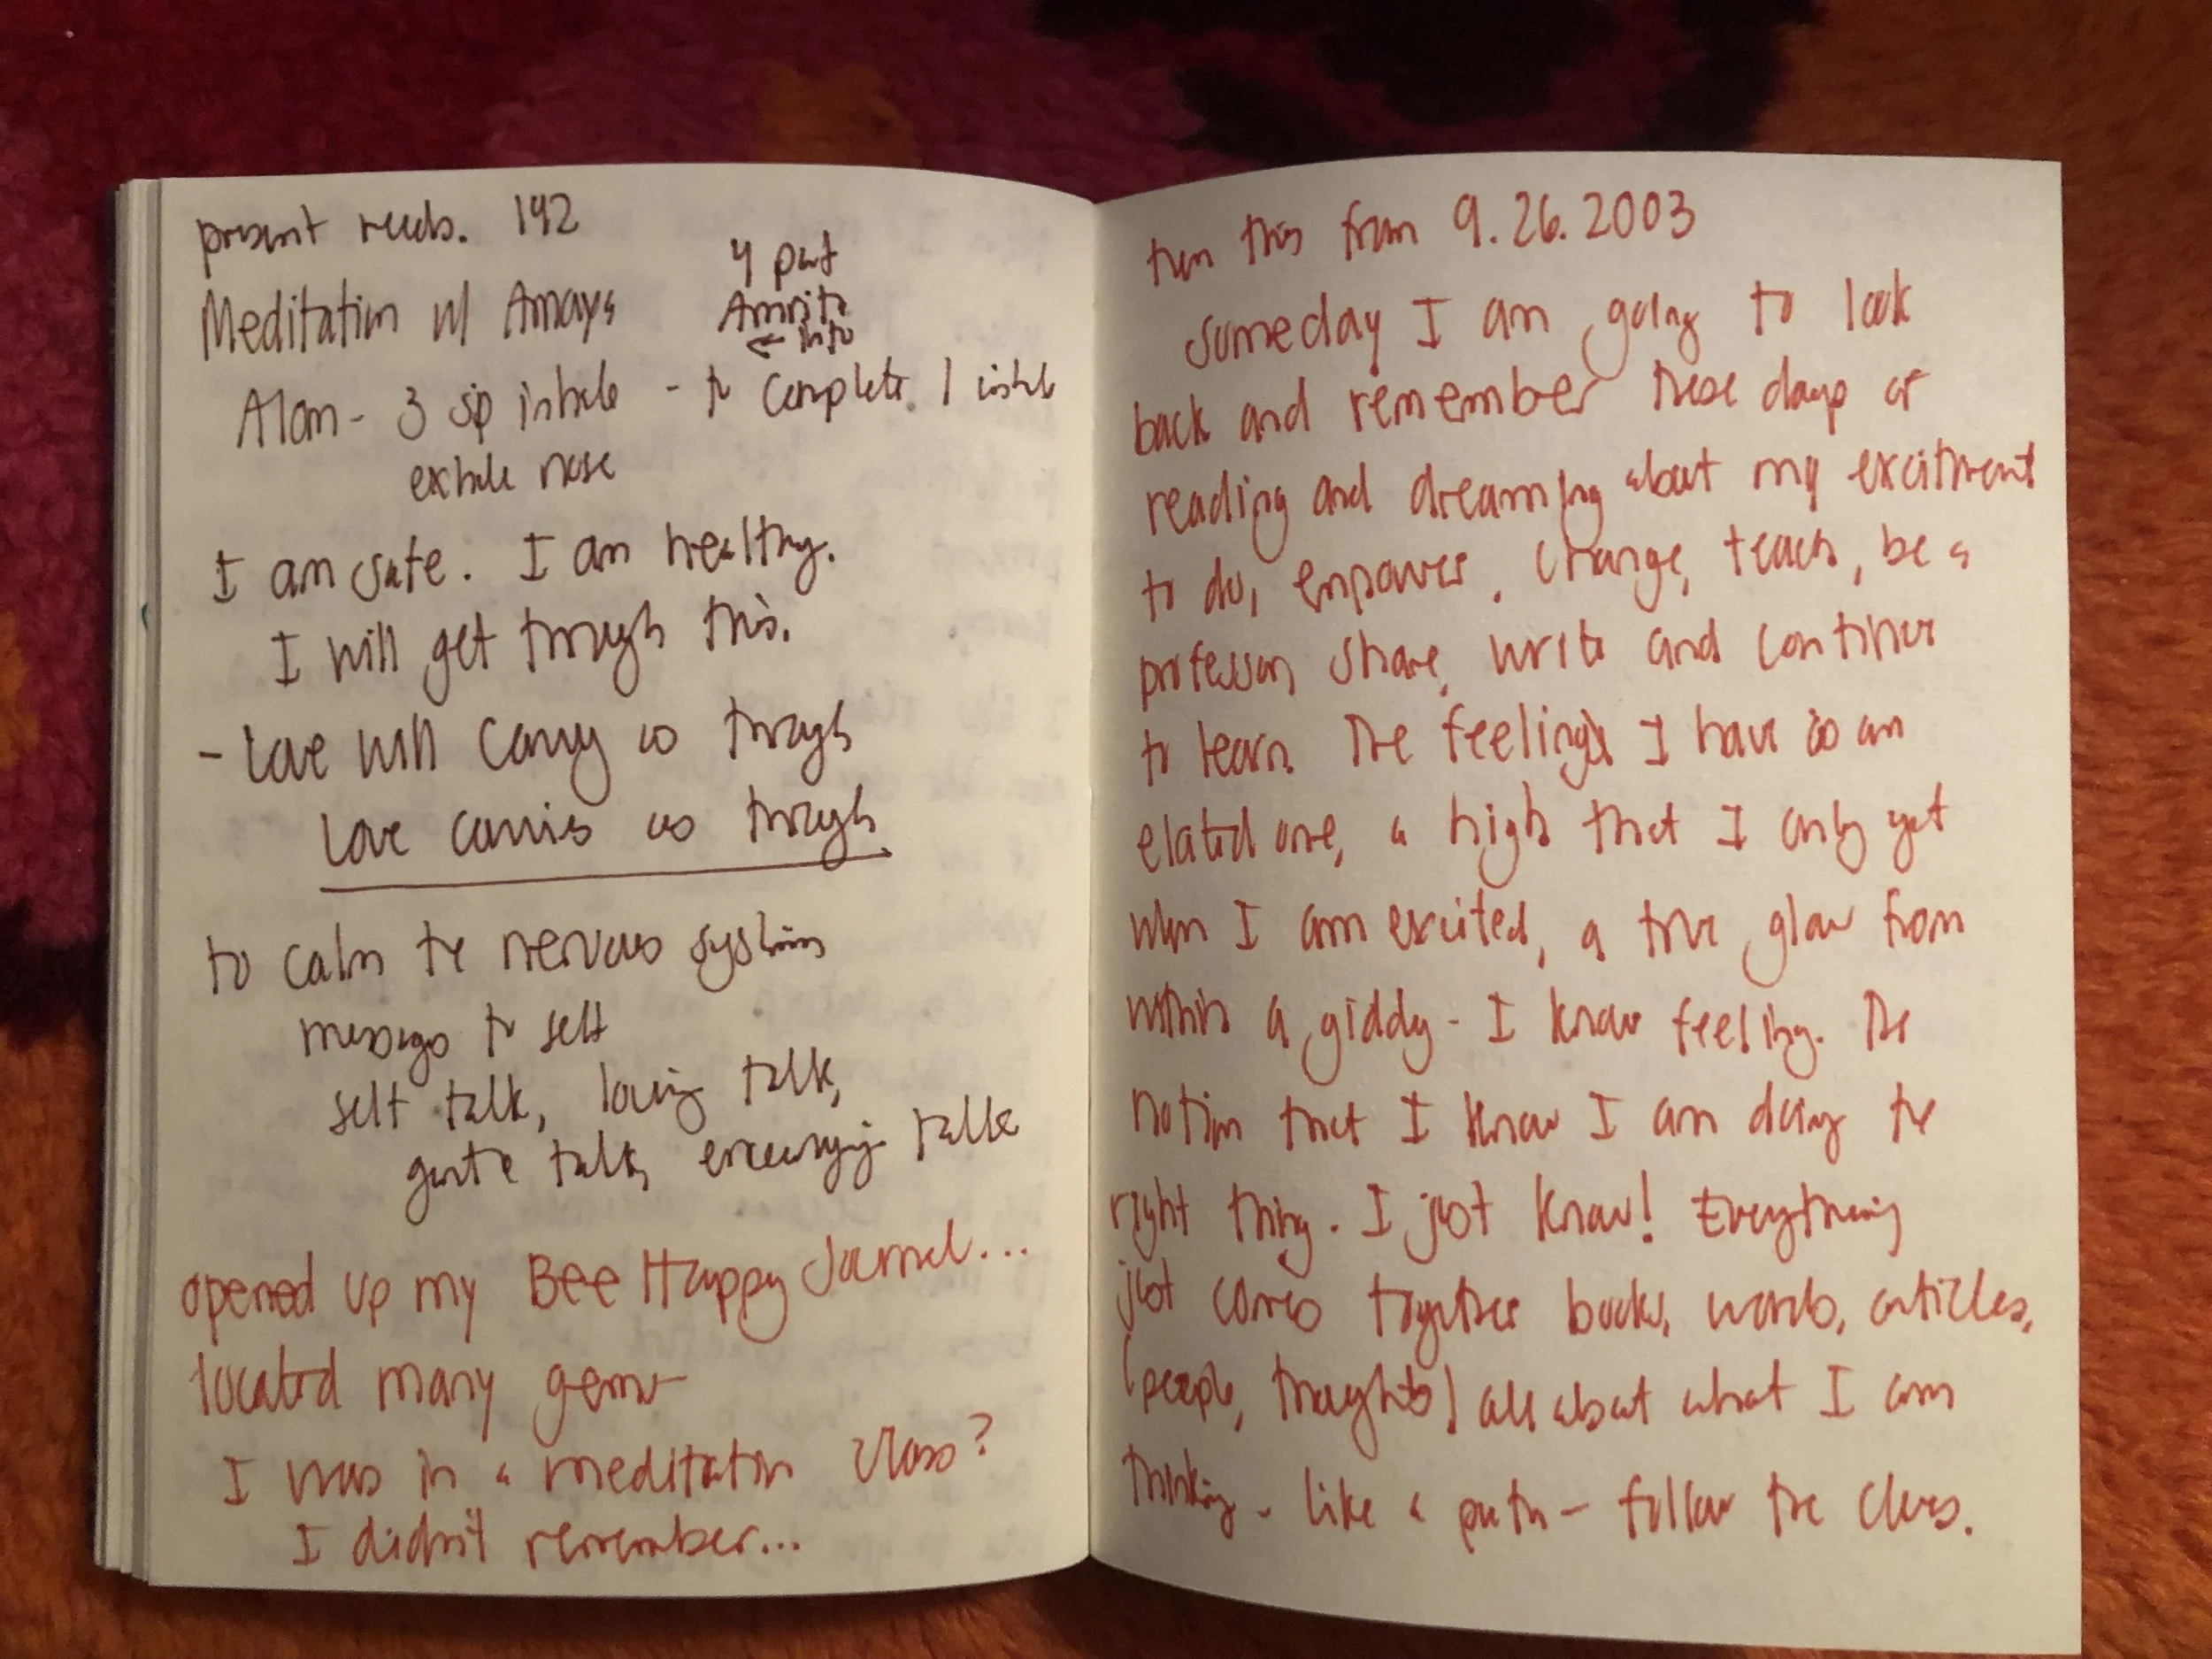 present needs. 142
Meditation w/
4 part
Amrita
← into
Alan - 3 sip inhale - to complete. 1 inhale
exhale nose
I am safe. I am healthy.
I will get through this.
- Love will carry us through
Love carries us through
to calm the nervous system
message to self
self talk, loving talk,
gentle talk, encouraging talk
opened up my Bee Happy Journal...
located many gems
I was in a meditation class?
I didn't remember...
then this from 9.26.2003
Someday I am going to look
back and remember these days of
reading and dreaming about my excitment
to do, empower, change, teach, be a
professor, share, write and continue
to learn. The feelings I have is an
elated one, a high that I only get
when I am excited, a true glow from
within a giddy - I know feeling. The
notion that I know I am doing the
right thing. I just know! Everything
just comes together books, words, articles,
(people, thoughts) all about what I am
thinking - like a path - follow the clues.